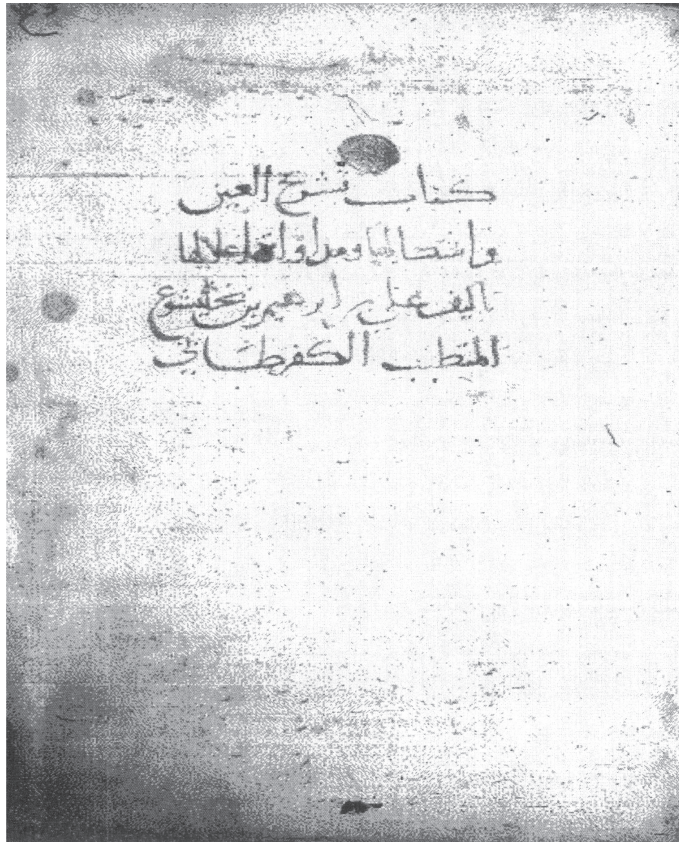 كتاب تشريح العين
واشكالها ومداواة اعلالها
تاليف علي بن ابرهيم بن بختيشوع
المتطبب الكفرطابي